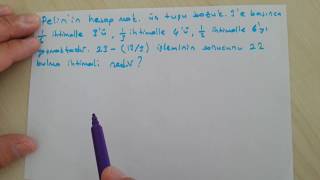 Pelin'in hesap mak. ün tuşu bozuk. 3'e basınca
1/3 ihtimalle 3'ü, 1/3 ihtimalle 4'ü, 1/3 ihtimalle 6'yı
23 - (12/3) işleminin sonucunu 22
bulma ihtimali nedir?